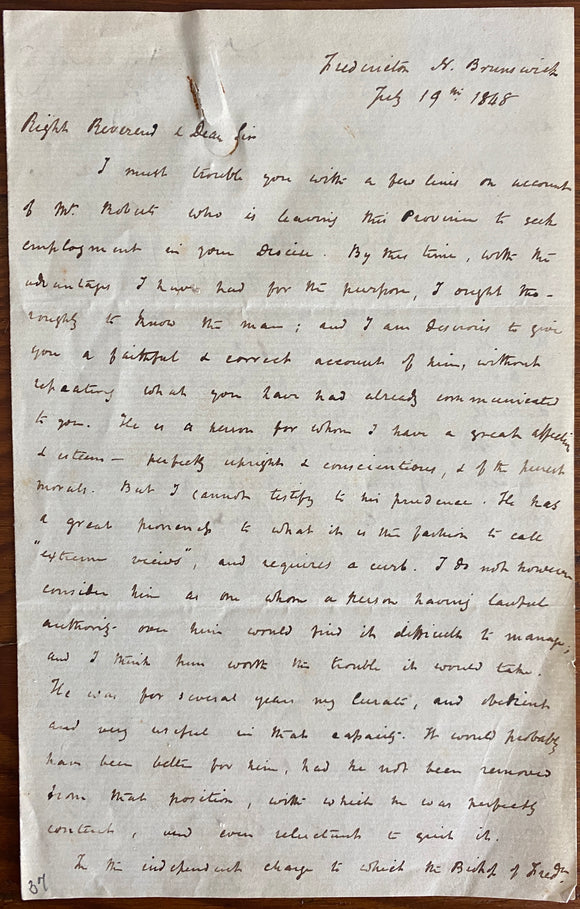 Fredericton N. Brunswick
July 19th 1848
Right Reverend & Dear Sir
I must trouble you with a few lines on account
of Mr. Roberts who is leaving this Province to seek
employment in your Diocese. By this time, with the
advantages I have had for the purpose, I ought tho-
roughly to know the man; and I am desirous to give
you a faithful & correct account of him, without
repeating what you have had already communicated
to you. He is a person for whom I have a great affection
& esteem – perfectly upright & conscientious, & of the purest
morals. But I cannot testify to his prudence. He has
a great proneness to what it is the fashion to call
"extreme views", and requires a curb. I do not however
consider him as one whom a person having lawful
authority over him would find it difficult to manage;
and I think him worth the trouble it would take.
He was for several years my Curate, and obedient
and very useful in that capacity. It would probably
have been better for him, had he not been removed
from that position, with which he was perfectly
content, and even reluctant to quit it.
In the independent charge to which the Bishop of Fredn
37